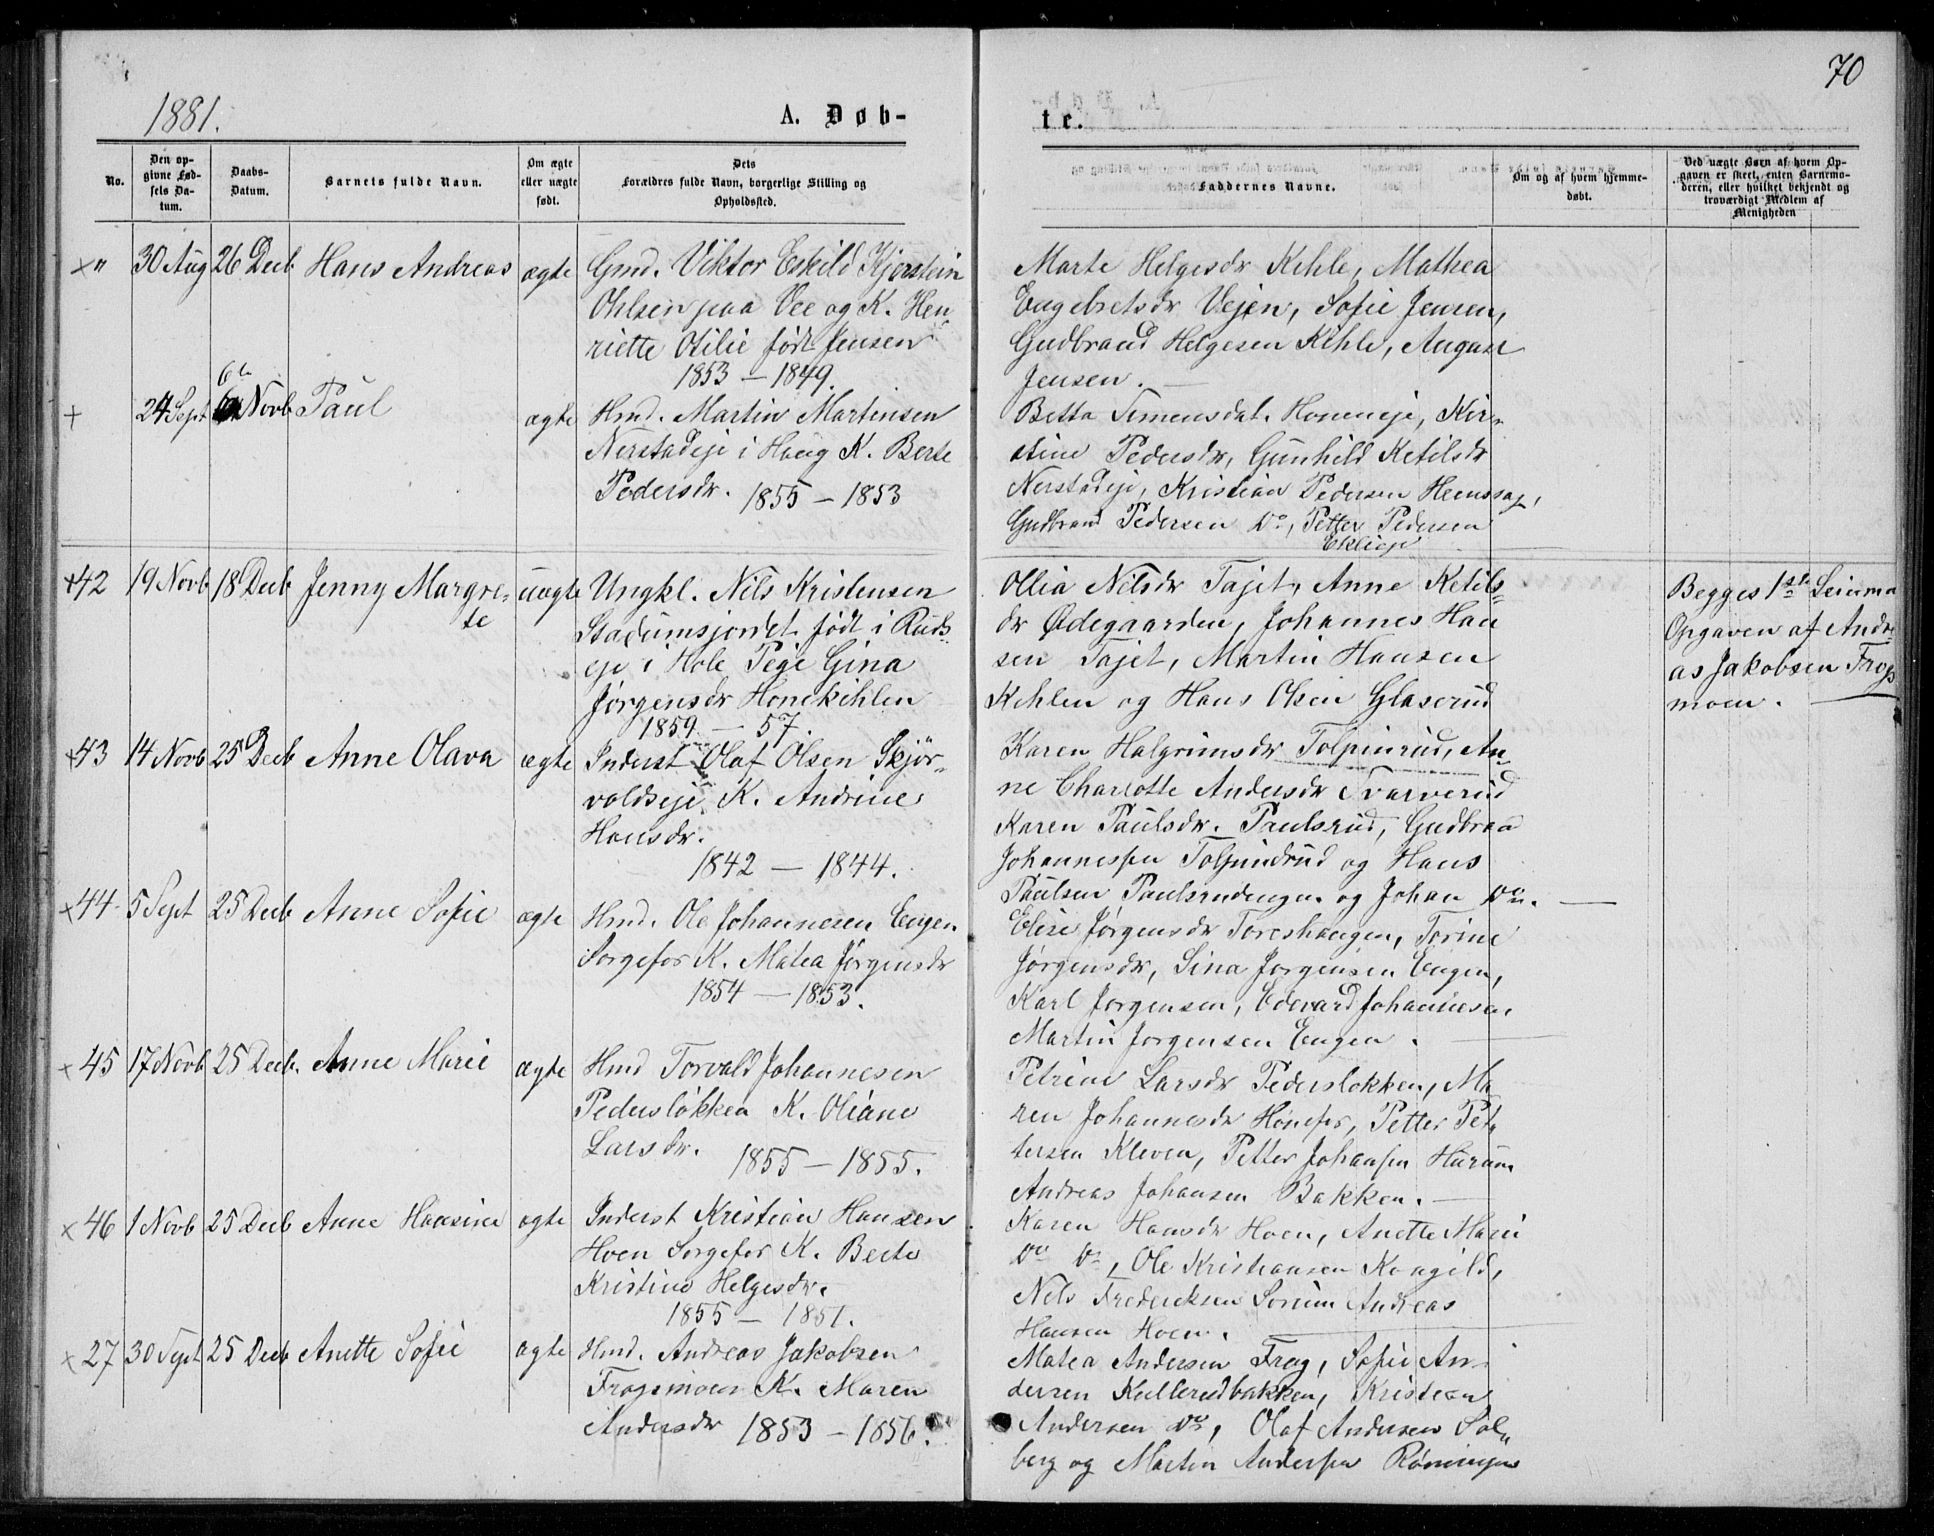 70
1881.
A. Døb-
te.
No.
Den op-
givne Fød-
sels Da-
tum.
Daabs-
Datum.
Barnets fulde Navn.
Om ægte
eller uægte
født.
Dets
Forældres fulde Navn, borgerlige Stilling og
Opholdssted.
Faddernes Navne.
Om og af hvem hjemme-
døbt.
Ved uægte Børn af hvem Op-
gaven er skeet, enten Barnemo-
deren, eller hvilket bekjendt og
troværdigt Medlem af
Menigheden
× " 30 Aug 26 Decb Hans Andreas ægte Gmd. Viktor Eskild Kjerstein
Ohlsen paa Vee og K. Hen-
riette Otilie født Jensen
1853 – 1849.
Marte Helgesdr Kihle, Mathea
Engebretsdr Vejen, Sofie Jensen,
Gudbrand Helgesen Kihle, August
Jensen.
+ 24 Sept 6te Novb Paul ægte Hmd. Martin Martinsen
Nerstadeje i Houg K. Berte
Pedersdr. 1855 – 1853
Betta Simensdat. Honeneje, Kir-
stine Pedersdr, Gunhild Ketilsdr
Nerstadeje, Kristian Pedersen
Gudbrand Pedersen Do, Petter Pedersen
Eklieje
×42 19 Novb 18 Decb Jenny Margre-
te
uægte Ungkl. Nils Kristensen
Stadumsjordet født i Ruds-
eje i Hole Pige Gina
Jørgensdr Honekihlen
1859 – 57.
Ollia Nilsdr Tajet, Anne Ketils-
dr Ødegaarden, Johannes Han
sen Tajet, Martin Hansen
Kihlen og Hans Olsen Glaserud
Begges 1ste Leierma
Opgaven af Andre
as Jakobsen Frogs
moen.
×43 14 Novb 25 Decb Anne Olava ægte Inderst Olaf Olsen Skjør-
valdseje K. Andrine
Hansdr.
1842 – 1844.
Karen Halgrimsdr Tolpinrud, An-
ne Charlotte Andersdr Tvarverud
Karen Paulsdr. Paulsrud, Gudbran
Johannessen Tolpindrud og Hans
Paulsen Paulsrudengen og Johan Do.
×44 5 Sept 25 Decb Anne Sofie ægte Hmd. Ole Johannesen Engen
Sorgefos K. Matea Jørgensdr
1854 – 1853.
Elise Jørgensdr Toreshaugen, Torine
Jørgensdr, Sina Jorgensen Engen,
Karl Jørgensen, Edevard Johannesen,
Martin Jorgensen Engen.
×45 17 Novb 25 Decb. Anne Marie ægte Hmd Torvald Johannesen
Pedersløkken K. Oliane
Larsdr. 1855 – 1855.
Petrine Larsdr Pedersløkken, Ma
ren Johannesdr Hønefos, Petter Pet
tersen Kleven, Petter Johansen Hurum
Andreas Johansen Bakken.
×46 1 Novb 25 Decb Anne Hansine ægte Inderst Kristian Hansen
Hoen Sorgefos K. Berte
Kristine Helgesdr.
1855 – 1851.
Karen Hansdr Hoen, Anette Marie
Do Do, Ole Kristiansen Kongild,
Nils Frederiksen Sorum Andreas
Hansen Hoen.
×27 30 Sept 25 Decb Anette Sofie ægte Hmd. Andreas Jakobsen
Frogsmoen K. Maren
Andersdr 1853 – 1856.
Matea Andersen Frog, Sofie An-
dersen Kullerudbakken, Kristian
Andersen Do, Olaf Andersen Sol-
berg og Martin Andersen Røningen